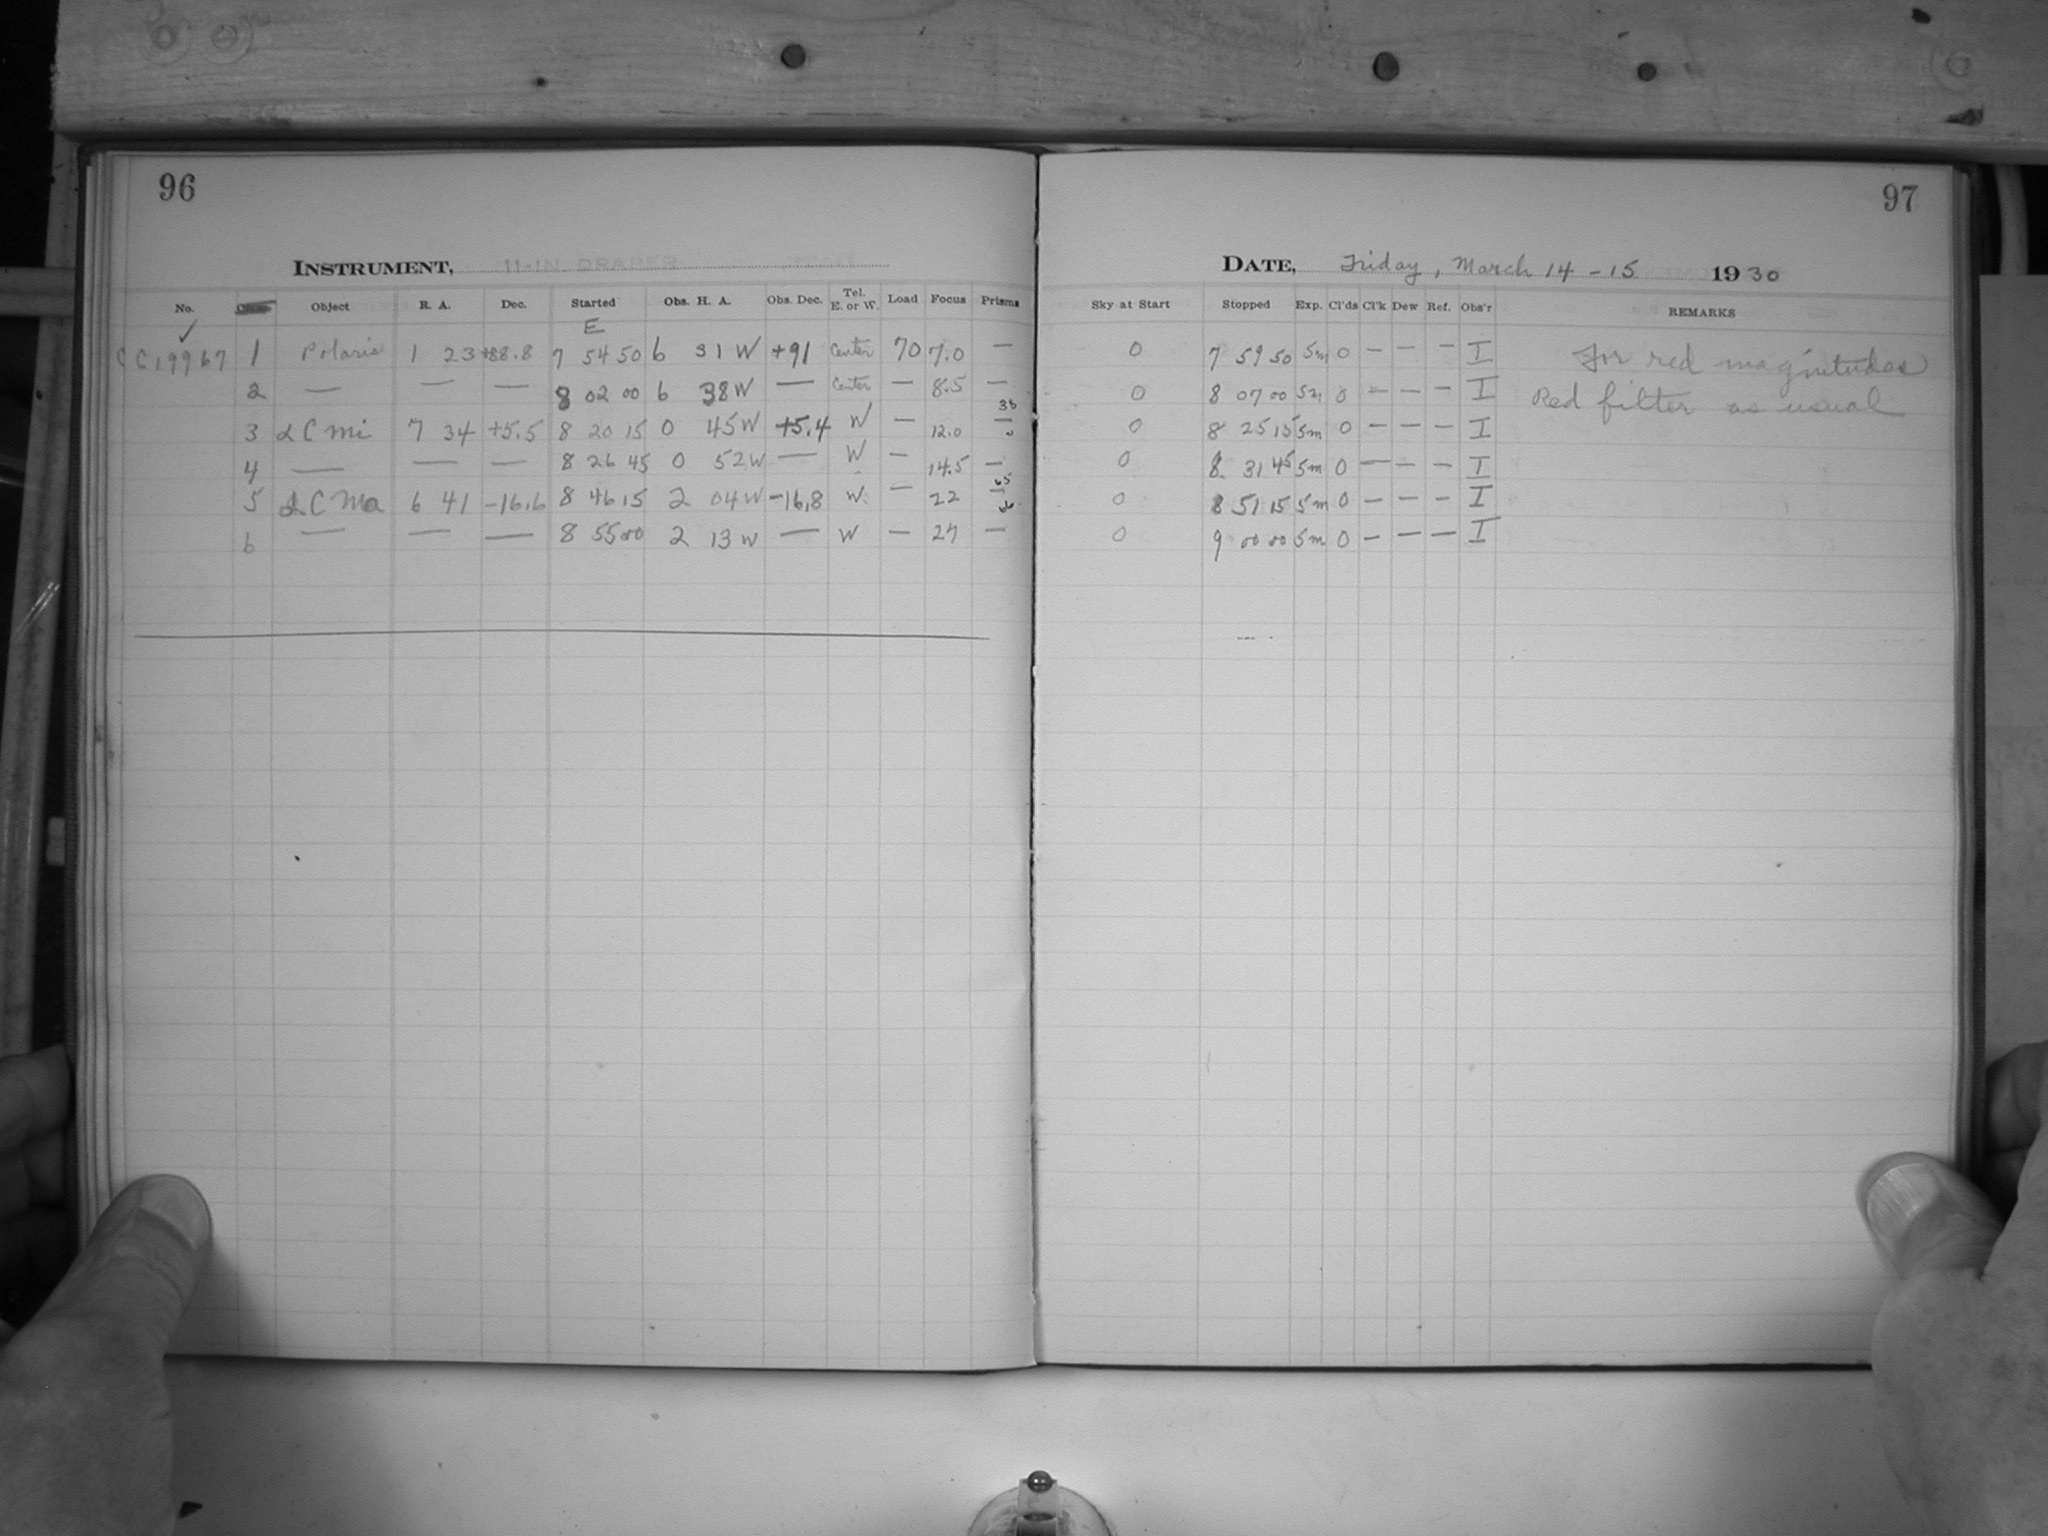 96
INSTRUMENT, 11-IN. DRAPER
No. Object R. A. Dec. Started Obs. H. A. Obs. Dec. Tel. E. or W. Load Focus Prisms
✓ E
C 19967 1 Polaris 1 23 +88.8 7 54 50 6 31 W +91 Center 70 7.0 —
2 — — — 8 02 00 6 38 W — Center — 8.5 —
3 α C Mi 7 34 +5.5 8 20 15 0 45 W +5.4 W — 12.0 —
4 — — — 8 26 45 0 52 W — W — 14.5 —
5 α C Ma 6 41 -16.6 8 46 15 2 04 W -16.8 W. — 22 —
6 — — — 8 55 00 2 13 W — W — 27 —
97
DATE, Friday, March 14-15 1930
Sky at Start Stopped Exp. Cl'ds Cl'k Dew Ref. Obs'r REMARKS
0 7 59 50 5m 0 — — — I For red magnitudes
0 8 07 00 5m 0 — — — I Red filter as usual
0 8 25 15 5m 0 — — — I
0 8 31 45 5m 0 — — — I
0 8 51 15 5m 0 — — — I
0 9 00 00 5m 0 — — — I